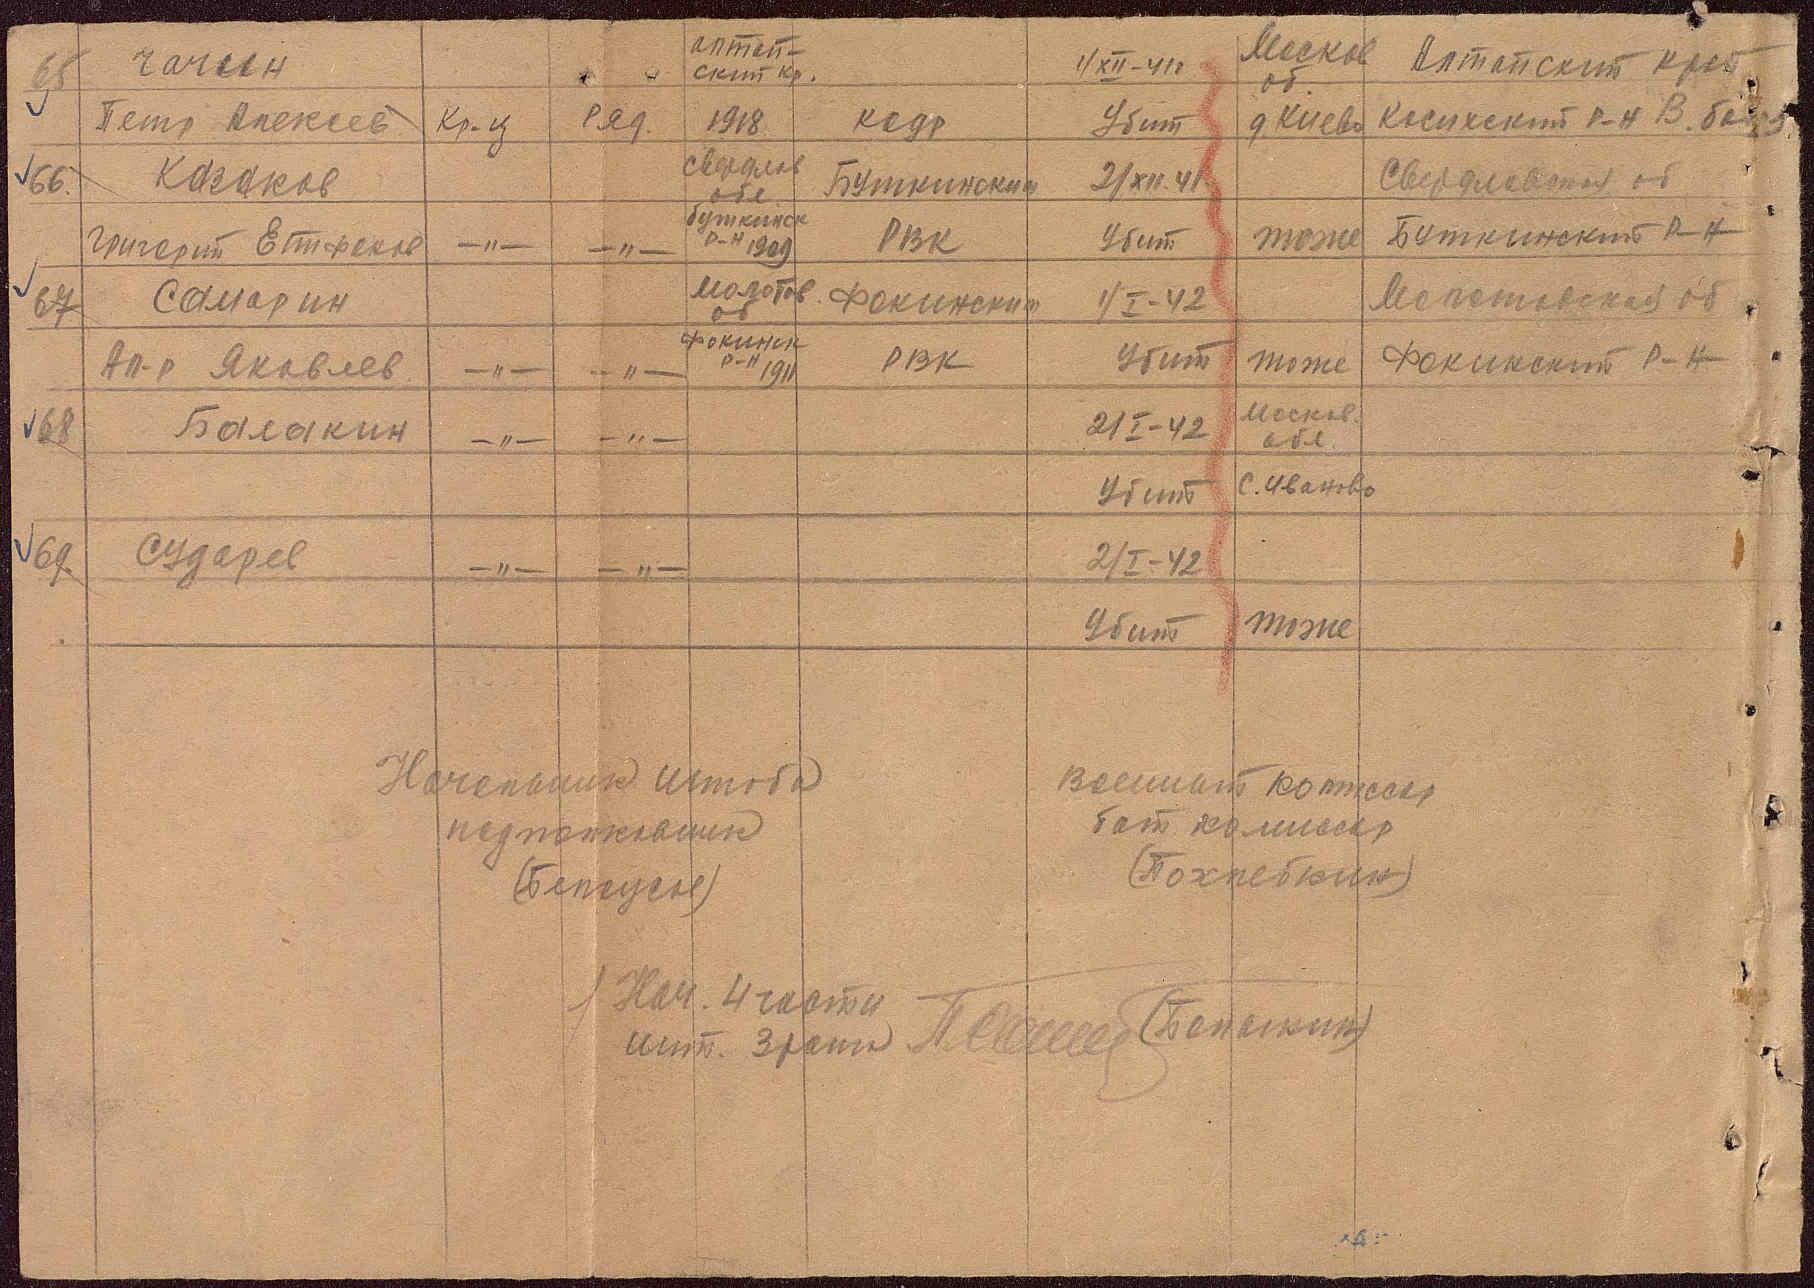 65 Чагин алтай- 1/XII-41г Москов Алтайский край
ский кр. об.
Петр Алексеев Кр-ц Ряд. 1918 кадр Убит д Киево Косихский р-н В.
66. Казаков Свердлов Буткинский 2/XII-41 Свердловская об
обл
Григорий Буткинск
р-н 1909 РВК Убит тоже Буткинский р-н
—"— —"—
67 Самарин Молотов Фокинский 1/I-42 Молотовская об
об
Фокинск
Ал-р Яковлев —"— —"— р-н 1911 РВК Убит тоже Фокинский р-н
68 Балакин —"— —"— 2/I-42 Москов.
обл.
Убит с. Иваново
69. Сударев —"— —"— 2/I-42
Убит тоже
Начальник штаба
подполковник
Военный комиссар
бат комиссар
(Похлебкин)
Нач. 4 части
инт. 3 ранга